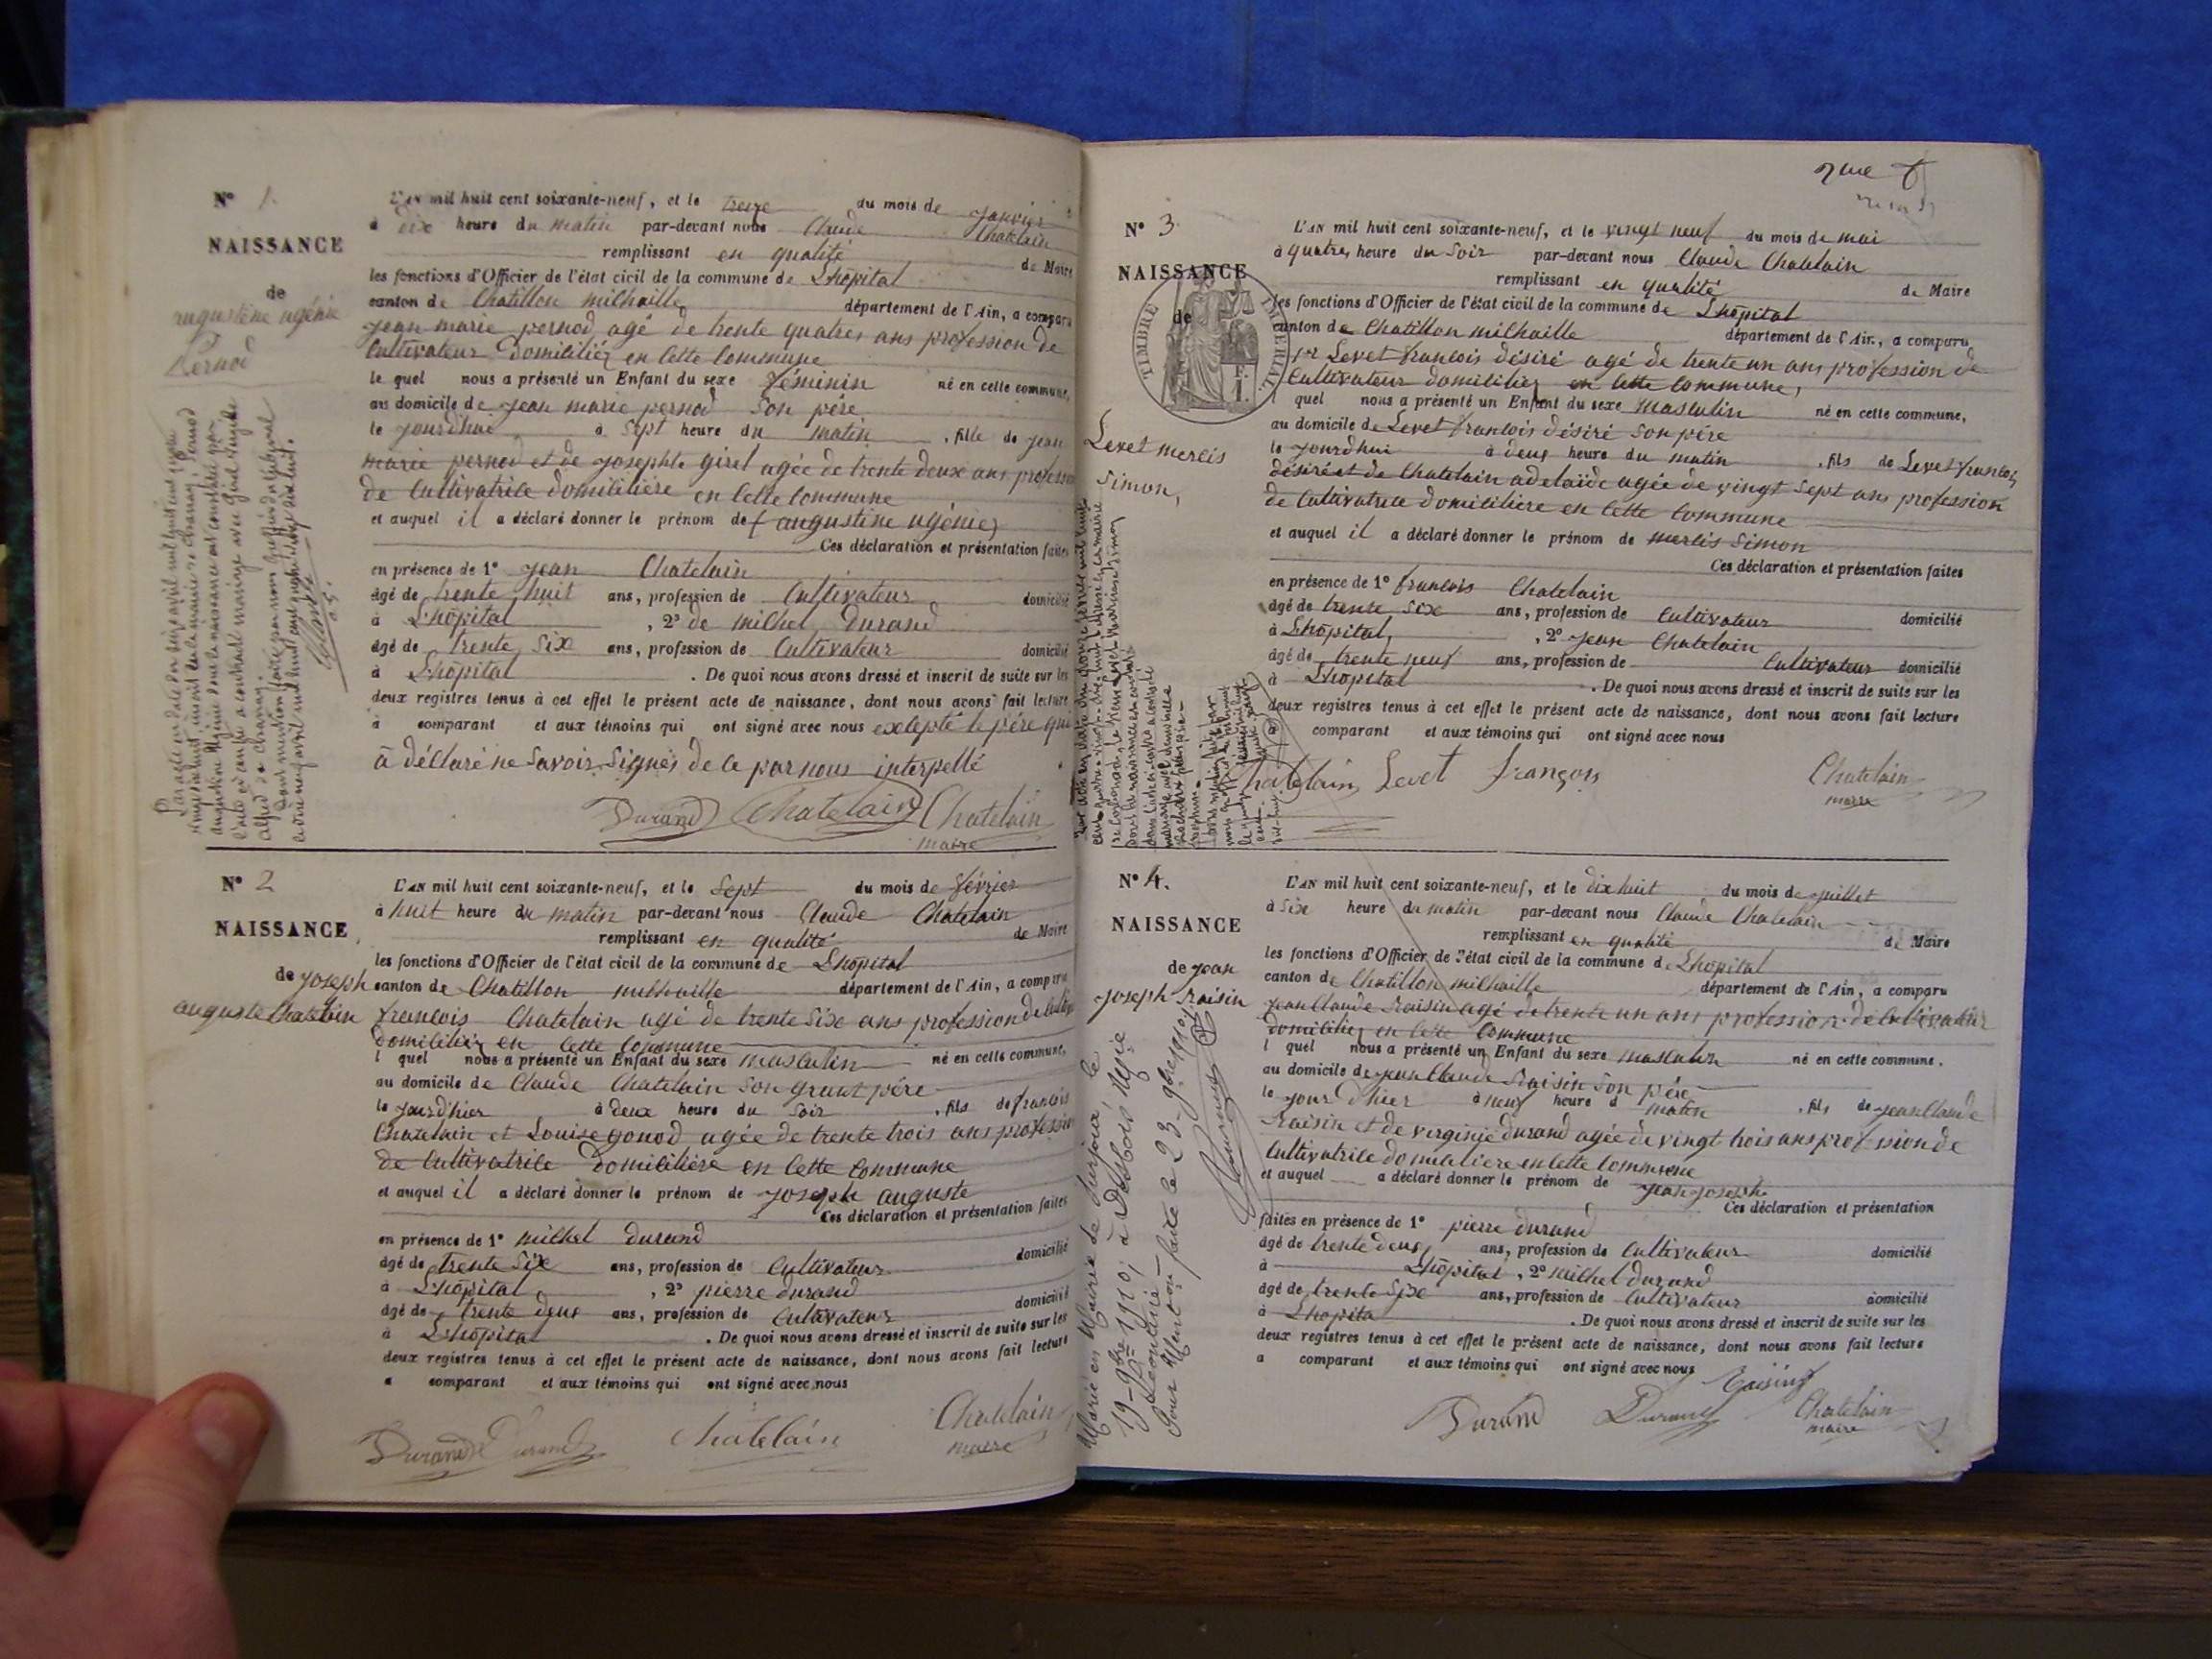 N° 1.
NAISSANCE
de
augustine ugénie
Pernod
L'AN mil huit cent soixante-neuf, et le treize du mois de janvier
à dix heure du matin par-devant nous Claude Chatelain
remplissant en qualité de Maire
les fonctions d'Officier de l'état civil de la commune de Lhôpital
canton de Chatillon milhaille département de l'Ain, a comparu
jean marie pernod agé de trente quatres ans profession de
Cultivateur Domiciliéz en Cette Commune
le quel nous a présenté un Enfant du sexe féminin né en cette commune,
au domicile de jean marie pernod Son père
le jourdhui à Sept heure du matin , fille de jean
marie pernod et de josephte girel agée de trente deux ans profession
de Cultivatrice domicilière en Cette Commune
et auquel il a déclaré donner le prénom de augustine ugénie
Ces déclaration et présentation faites
en présence de 1° jean Chatelain
âgé de trente huit ans, profession de Cultivateur domicilié
à Lhôpital , 2° de milhel Durand
âgé de trente six ans, profession de Cultivateur domicilié
à Lhôpital . De quoi nous avons dressé et inscrit de suite sur les
deux registres tenus à cet effet le présent acte de naissance, dont nous avons fait lecture
à comparant et aux témoins qui ont signé avec nous exlepté le père qui
à déllaré ne Savoir Signés de le par nous interpellé
Durand Chatelain Chatelain
maire
N° 2
NAISSANCE
de joseph
auguste Chatelain
L'AN mil huit cent soixante-neuf, et le Sept du mois de février
à huit heure du matin par-devant nous Claude Chatelain
remplissant en qualité de Maire
les fonctions d'Officier de l'état civil de la commune de Lhôpital
canton de Chatillon milhaille département de l'Ain, a comparu
francois Chatelain agé de trente Six ans profession de
domiciliéz en Cette Commune
l quel nous a présenté un Enfant du sexe masculin né en cette commune,
au domicile de Claude Chatelain Son grant père
le jourd'hier à deux heure du Soir , fils de francois
Chatelain et Louise gonod agée de trente trois ans profession
de Cultivatrice domicilière en Cette Commune
et auquel il a déclaré donner le prénom de joseph auguste
Ces déclaration et présentation faites
en présence de 1° milhel durand
âgé de trente Six ans, profession de Cultivateur domicilié
à Lhôpital , 2° pierre durand
âgé de trente deus ans, profession de Cultivateur domicilié
à Lhôpital . De quoi nous avons dressé et inscrit de suite sur les
deux registres tenus à cet effet le présent acte de naissance, dont nous avons fait lecture
a comparant et aux témoins qui ont signé avec nous
Durand Durand Chatelain Chatelain
maire
N° 3.
NAISSANCE
de
TIMBRE IMPERIAL
Levet merlis
Simon,
L'AN mil huit cent soixante-neuf, et le vingt neuf du mois de mai
à quatres heure du Soir par-devant nous Claude Chatelain
remplissant en qualité de Maire
les fonctions d'Officier de l'état civil de la commune de Lhôpital
canton de Chatillon milhaille département de l'Ain, a comparu
Levet francois désiré agé de trente un ans profession de
Cultivateur domiciliéz en Cette Commune,
l quel nous a présenté un Enfant du sexe masculin né en cette commune,
au domicile de Levet francois désiré Son père
le jourdhui à deus heure du matin , fils de Levet francois
désiré et de Chatelain adelaide agée de vingt Sept ans profession
de Cultivatrice domicilière en Cette Commune
et auquel il a déclaré donner le prénom de merlis Simon
Ces déclaration et présentation faites
en présence de 1° francois Chatelain
âgé de trente Six ans, profession de Cultivateur domicilié
à Lhôpital, , 2° jean Chatelain
âgé de trente neuf ans, profession de Cultivateur domicilié
à Lhôpital . De quoi nous avons dressé et inscrit de suite sur les
deux registres tenus à cet effet le présent acte de naissance, dont nous avons fait lecture
comparant et aux témoins qui ont signé avec nous
Chatelain Levet françois Chatelain
maire
N° 4.
NAISSANCE
de jean
joseph Raisin
Marié en Mairie de
19 - 9bre 1910, à Desbois
Léontine
Pour Mention faite le 23 - 9bre 1910
L'AN mil huit cent soixante-neuf, et le dix huit du mois de juillet
à Six heure du matin par-devant nous Claude Chatelain
remplissant en qualité de Maire
les fonctions d'Officier de l'état civil de la commune de Lhôpital
canton de Chatillon milhaille département de l'Ain, a comparu
jean Claude Raisin agé de trente un ans profession de Cultivateur
domiciliéz en Cette Commune
l quel nous a présenté un Enfant du sexe masculin né en cette commune.
au domicile de jean Claude Raisin Son père
le jour d'hier à neuf heure d matin , fils de jean Claude
Raisin et de virginie durand agée de vingt trois ans profession de
Cultivatrice domicilière en Cette Commune
et auquel a déclaré donner le prénom de jean joseph
Ces déclaration et présentation
faites en présence de 1° pierre durand
âgé de trente deus ans, profession de Cultivateur domicilié
à Lhôpital , 2° milhel durand
âgé de trente Six ans, profession de Cultivateur domicilié
à Lhopital . De quoi nous avons dressé et inscrit de suite sur les
deux registres tenus à cet effet le présent acte de naissance, dont nous avons fait lecture
a comparant et aux témoins qui ont signé avec nous
Raisin
Durand Durand Chatelain
maire